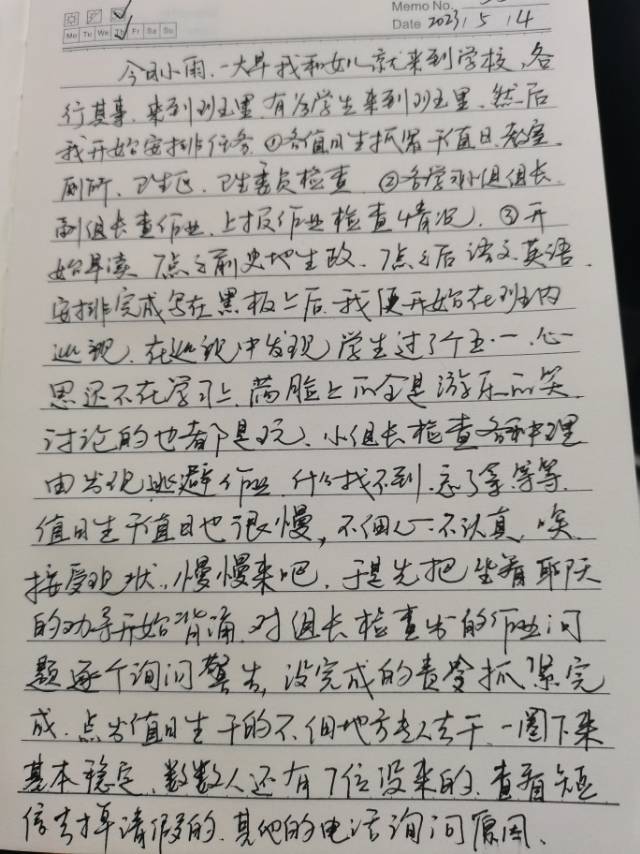 Memo No.
Mo Tu We Th Fr Sa Su
Date 2023.5.14
今日小雨,一大早我和女儿就来到学校,各
行其事,来到班里,有学生来到班里,然后
我开始安排任务①各值日生抓紧干值日,教室
厕所、卫生区、卫生委员检查 ②各学习小组组长,
副组长查作业,上报作业检查情况,③开
始早读 7点之前史地生政,7点之后语文英语,
安排完成写在黑板上后,我便开始在班内
巡视,在巡视中发现学生过了个五一,心
思还不在学习上,满脸上全是游乐的笑
讨论的也都是玩、小组长检查各种理
由出现逃避作业,什么找不到,忘了拿,等等,
值日生干值日也很慢,不细心不认真,唉
接受现状,慢慢来吧,于是先把坐着聊天
的劝导开始背诵,对组长检查出的作业问
题逐个询问 没完成的责令抓紧完
成,点出值日生干的不细地方专人去干,一圈下来
基本稳定,数数人还有7位没来的,查看短
信去掉请假的,其他的电话询问原因、